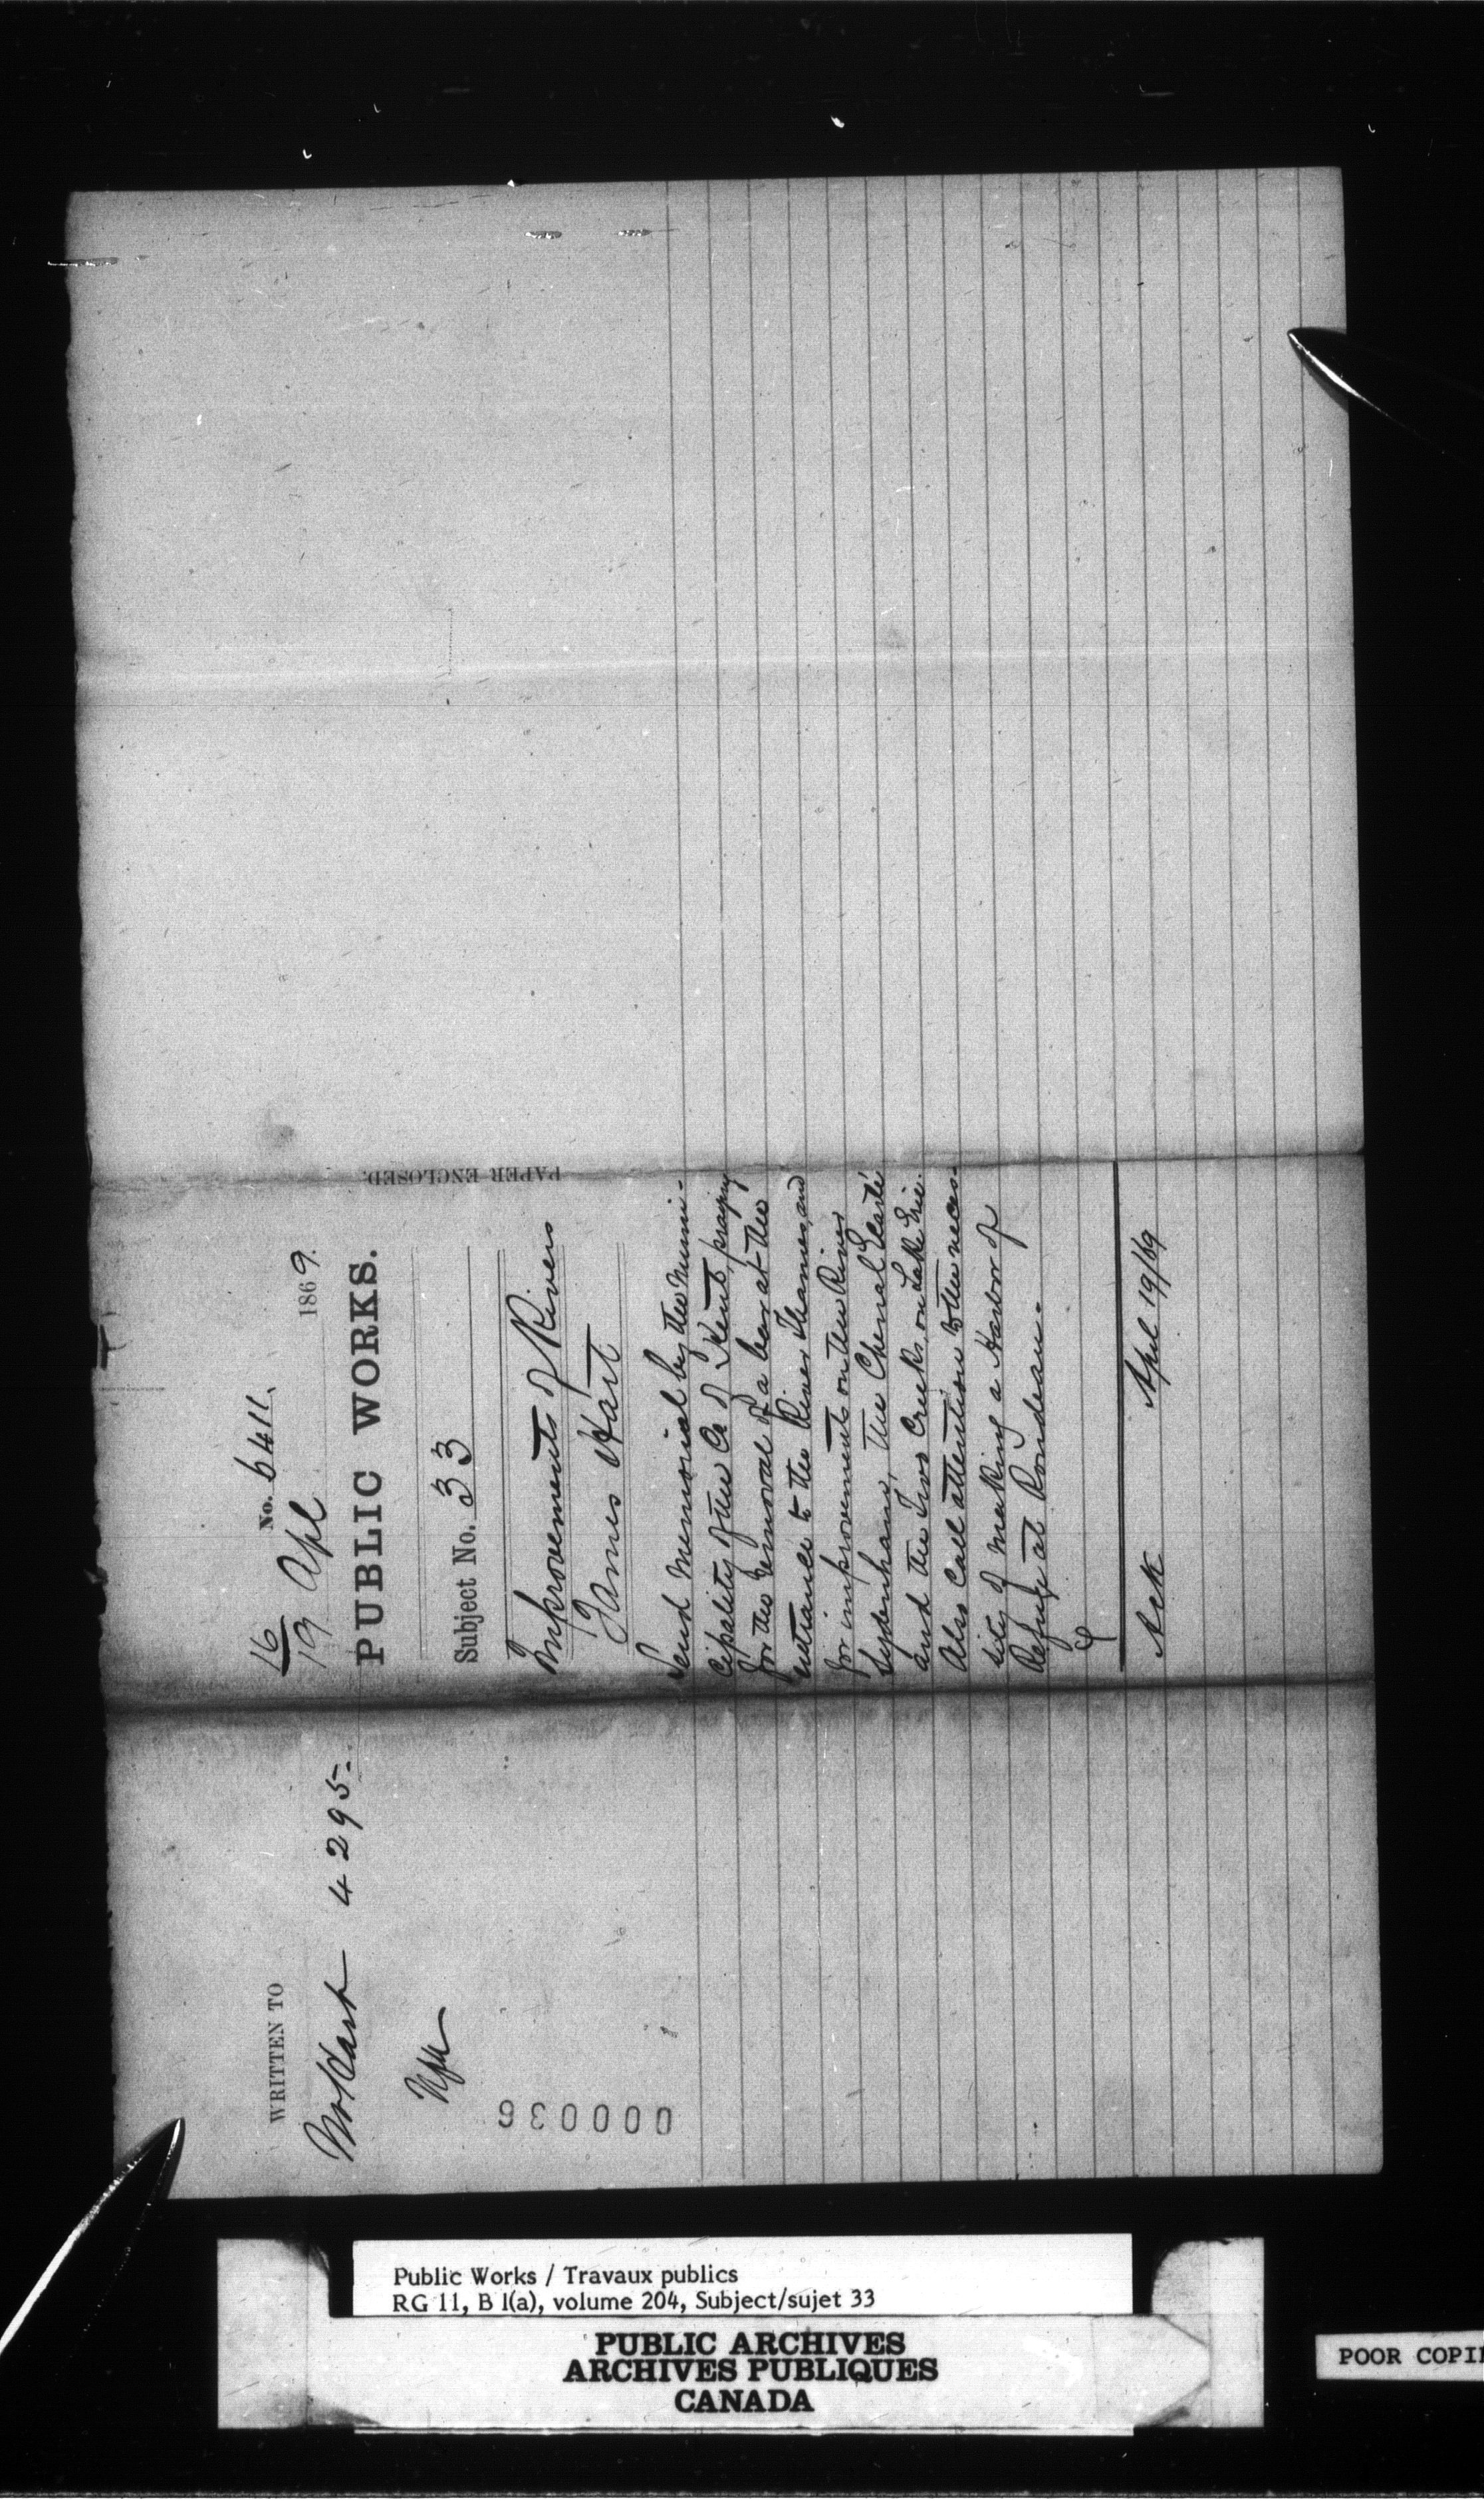 16 No. 6411.
19 Apl 1869.
PUBLIC WORKS.
Subject No. 33
Improvements of Rivers
James Hart
PAPER ENCLOSED.
Send Memorial by the Muni-
cipality of the Co of Kent, praying
for the removal of a bar at the
entrance to the River Thames, and
for improvements on the River
Sydenham, the Chenal Ecarté
and the Two Creeks, on Lake Erie.
Also call attention to the neces-
sity of making a Harbor of
Refuge at Rondeau.-
Ack April 19/69
WRITTEN TO
Mr Hart 4295-
000036
Public Works / Travaux publics
RG 11, B 1(a), volume 204, Subject/sujet 33
PUBLIC ARCHIVES
ARCHIVES PUBLIQUES
CANADA
POOR COPI